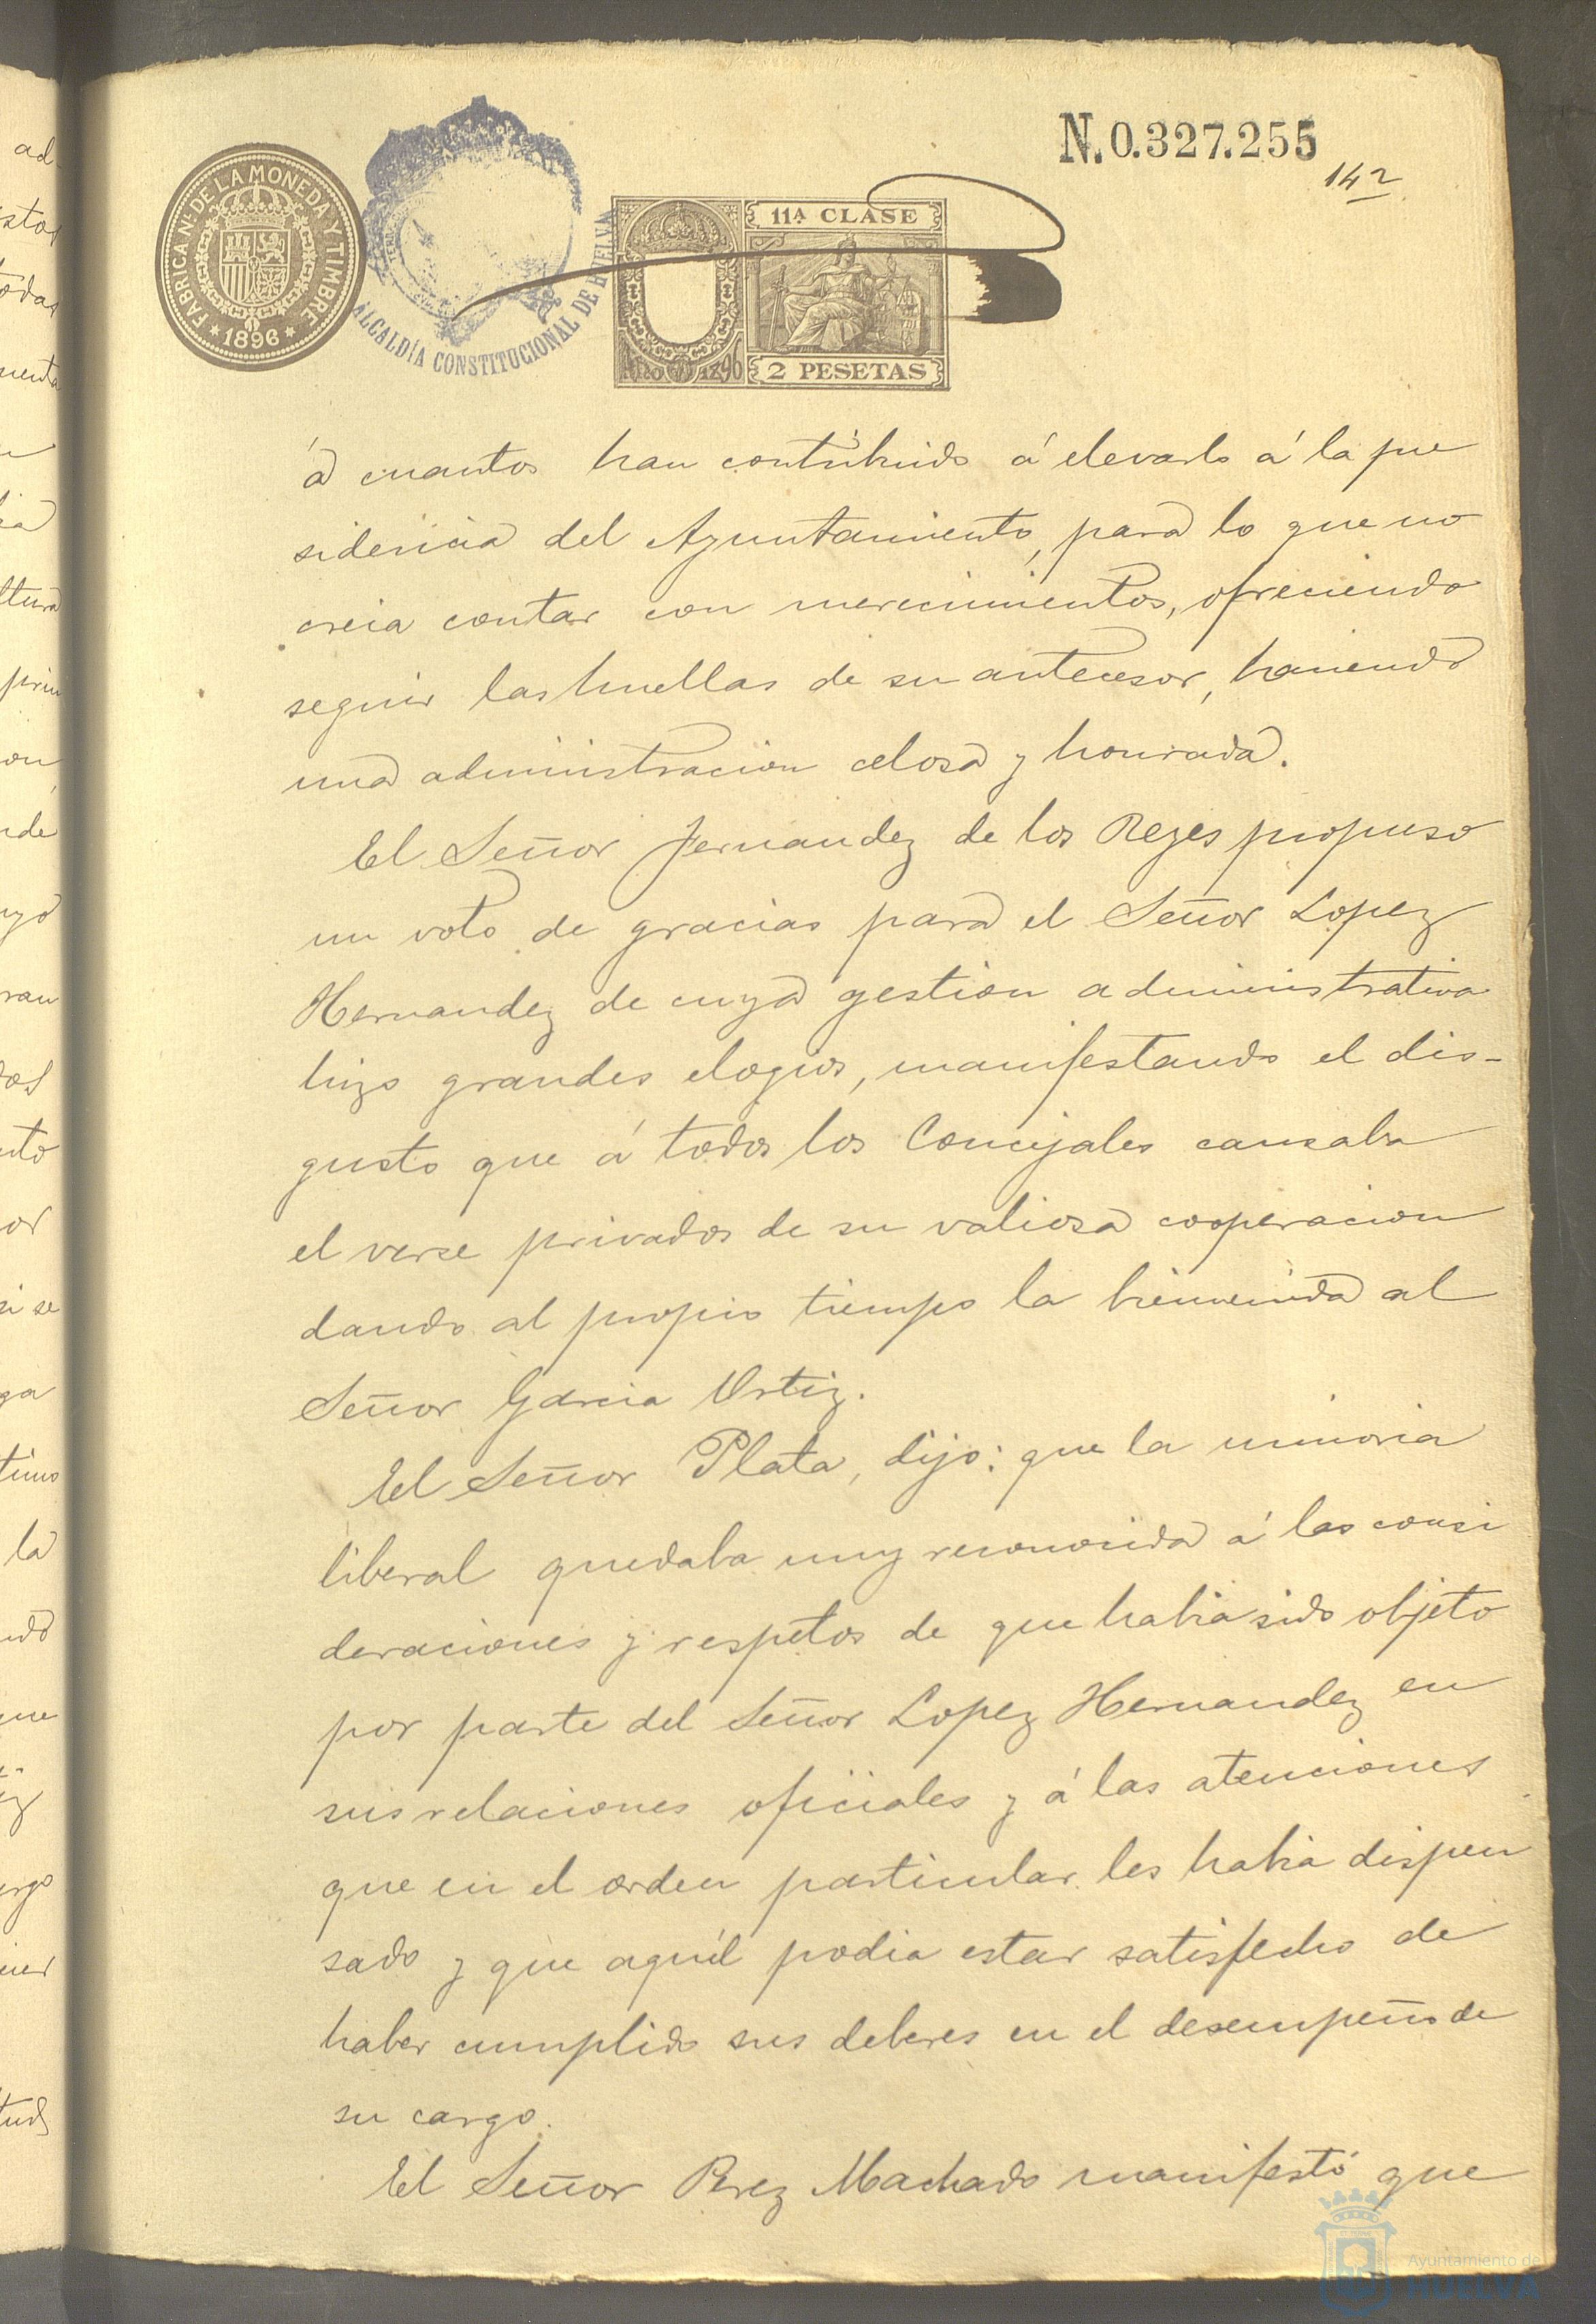 N. 0.327.255
142
FABRICA NAL. DE LA MONEDA Y TIMBRE
* 1896 *
ALCALDÍA CONSTITUCIONAL DE HUELVA
11ª CLASE
2 PESETAS
á cuantos han contribuido á elevarlo á la pre
sidencia del Ayuntamiento, para lo que no
creia contar con merecimientos, ofreciendo
seguir las huellas de su antecesor, haciendo
una administracion celosa y honrada.
El Señor Fernandez de los Reyes propuso
un voto de gracias para el Señor Lopez
Hernandez de cuya gestion administrativa
hizo grandes elogios, manifestando el dis-
gusto que á todos los Concejales causaba
el verse privados de su valiosa cooperacion
dando al propio tiempo la bienvenida al
Señor Garcia Ortiz.
El Señor Plata, dijo: que la minoria
liberal quedaba muy reconocida á las consi
deraciones y respetos de que habia sido objeto
por parte del Señor Lopez Hernandez en
sus relaciones oficiales y á las atenciones
que en el orden particular les habia dispen
sado y que aquél podia estar satisfecho de
haber cumplido sus deberes en el desempeño de
su cargo.
El Señor Perez Machado manifestó que
Ayuntamiento de
HUELVA